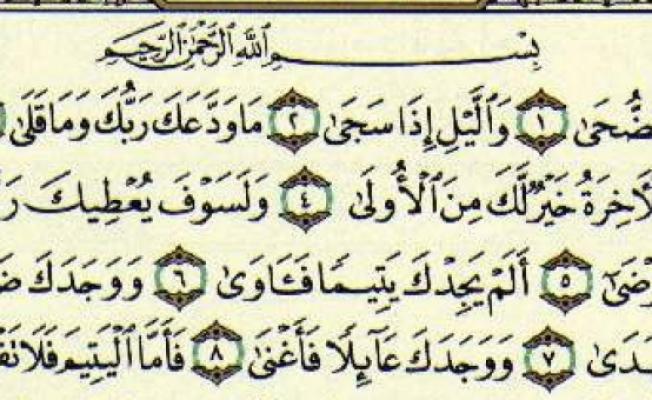 بِسْمِ ٱللَّهِ ٱلرَّحْمَٰنِ ٱلرَّحِيمِ
ضُّحَىٰ ١ وَٱلَّيْلِ إِذَا سَجَىٰ ٢ مَا وَدَّعَكَ رَبُّكَ وَمَا قَلَىٰ
لَاخِرَةُ خَيْرٌ لَّكَ مِنَ ٱلْأُولَىٰ ٤ وَلَسَوْفَ يُعْطِيكَ رَ
رْضَىٰ ٥ أَلَمْ يَجِدْكَ يَتِيمًا فَـَٔاوَىٰ ٦ وَوَجَدَكَ ضَ
ـدَىٰ ٧ وَوَجَدَكَ عَآئِلًا فَأَغْنَىٰ ٨ فَأَمَّا ٱلْيَتِيمَ فَلَا تَقْ